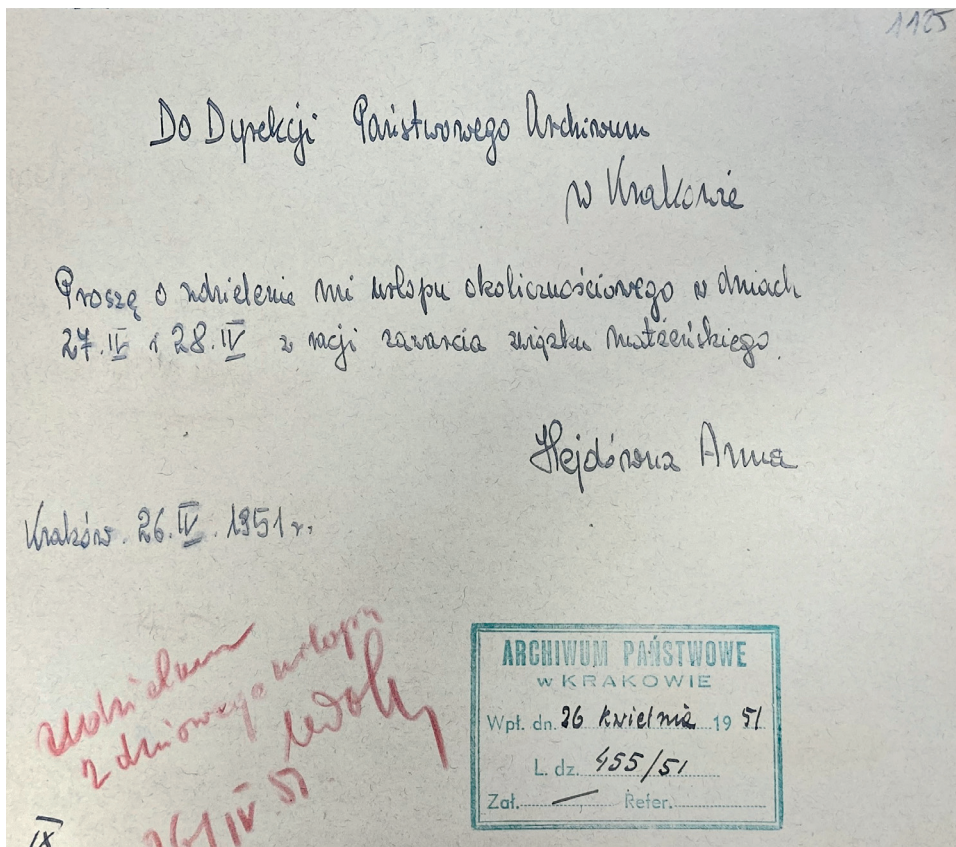 1125
Do Dyrekcji Państwowego Archiwum
w Krakowie
Proszę o udzielenie mi urlopu okolicznościowego w dniach
27.IV i 28.IV z racji zawarcia związku małżeńskiego.
Hejdówna Anna
Kraków. 26.IV.1951 r.
Udzielam
2 dniowego urlopu
26/IV 51
ARCHIWUM PAŃSTWOWE
w KRAKOWIE
Wpł. dn. 26 kwietnia 19 51
L. dz. 455/51
Zał. — Refer.
IX